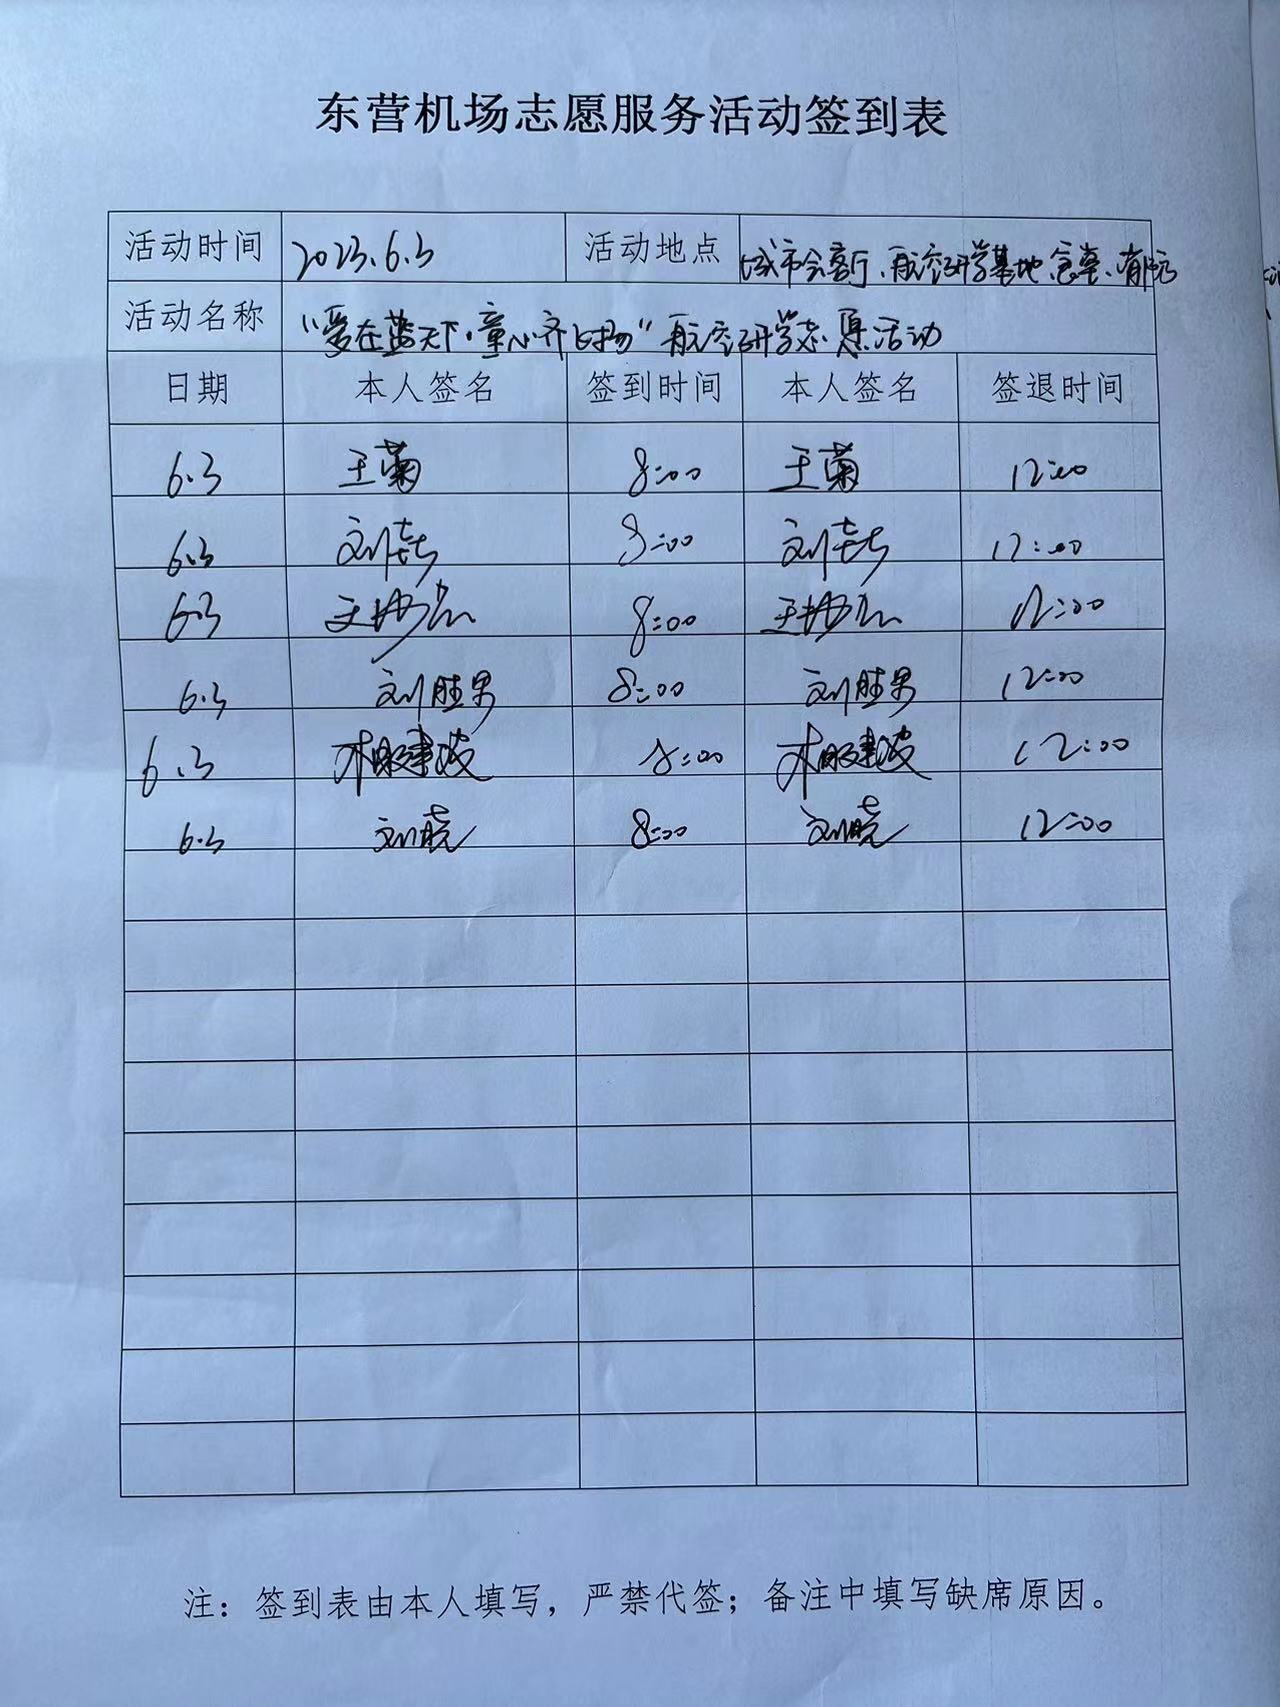 东营机场志愿服务活动签到表
活动时间 2023.6.3 活动地点 城市会客厅、航空研学基地、
活动名称 "爱在蓝天下·童心齐飞扬"航空研学志愿活动
日期 本人签名 签到时间 本人签名 签退时间
6.3 王菊 8:00 王菊 12:00
6.3 刘 8:00 刘 12:00
6.3 王 8:00 王 12:00
6.3 刘胜男 8:00 刘胜男 12:00
6.3 8:00 12:00
6.3 刘晓 8:00 刘晓 12:00
注：签到表由本人填写，严禁代签；备注中填写缺席原因。